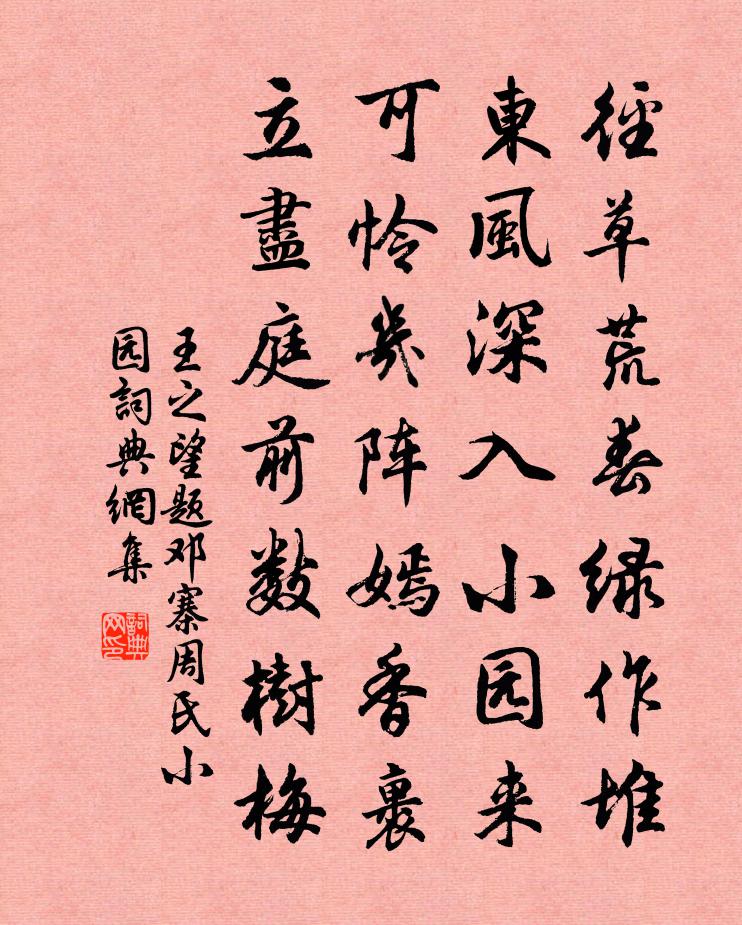 徑草荒春绿作堆
東風深入小园来
可怜幾阵嫣香裹
立盡庭前数樹梅
王之望题邓寨周氏小
园詞典網集
詞典网印